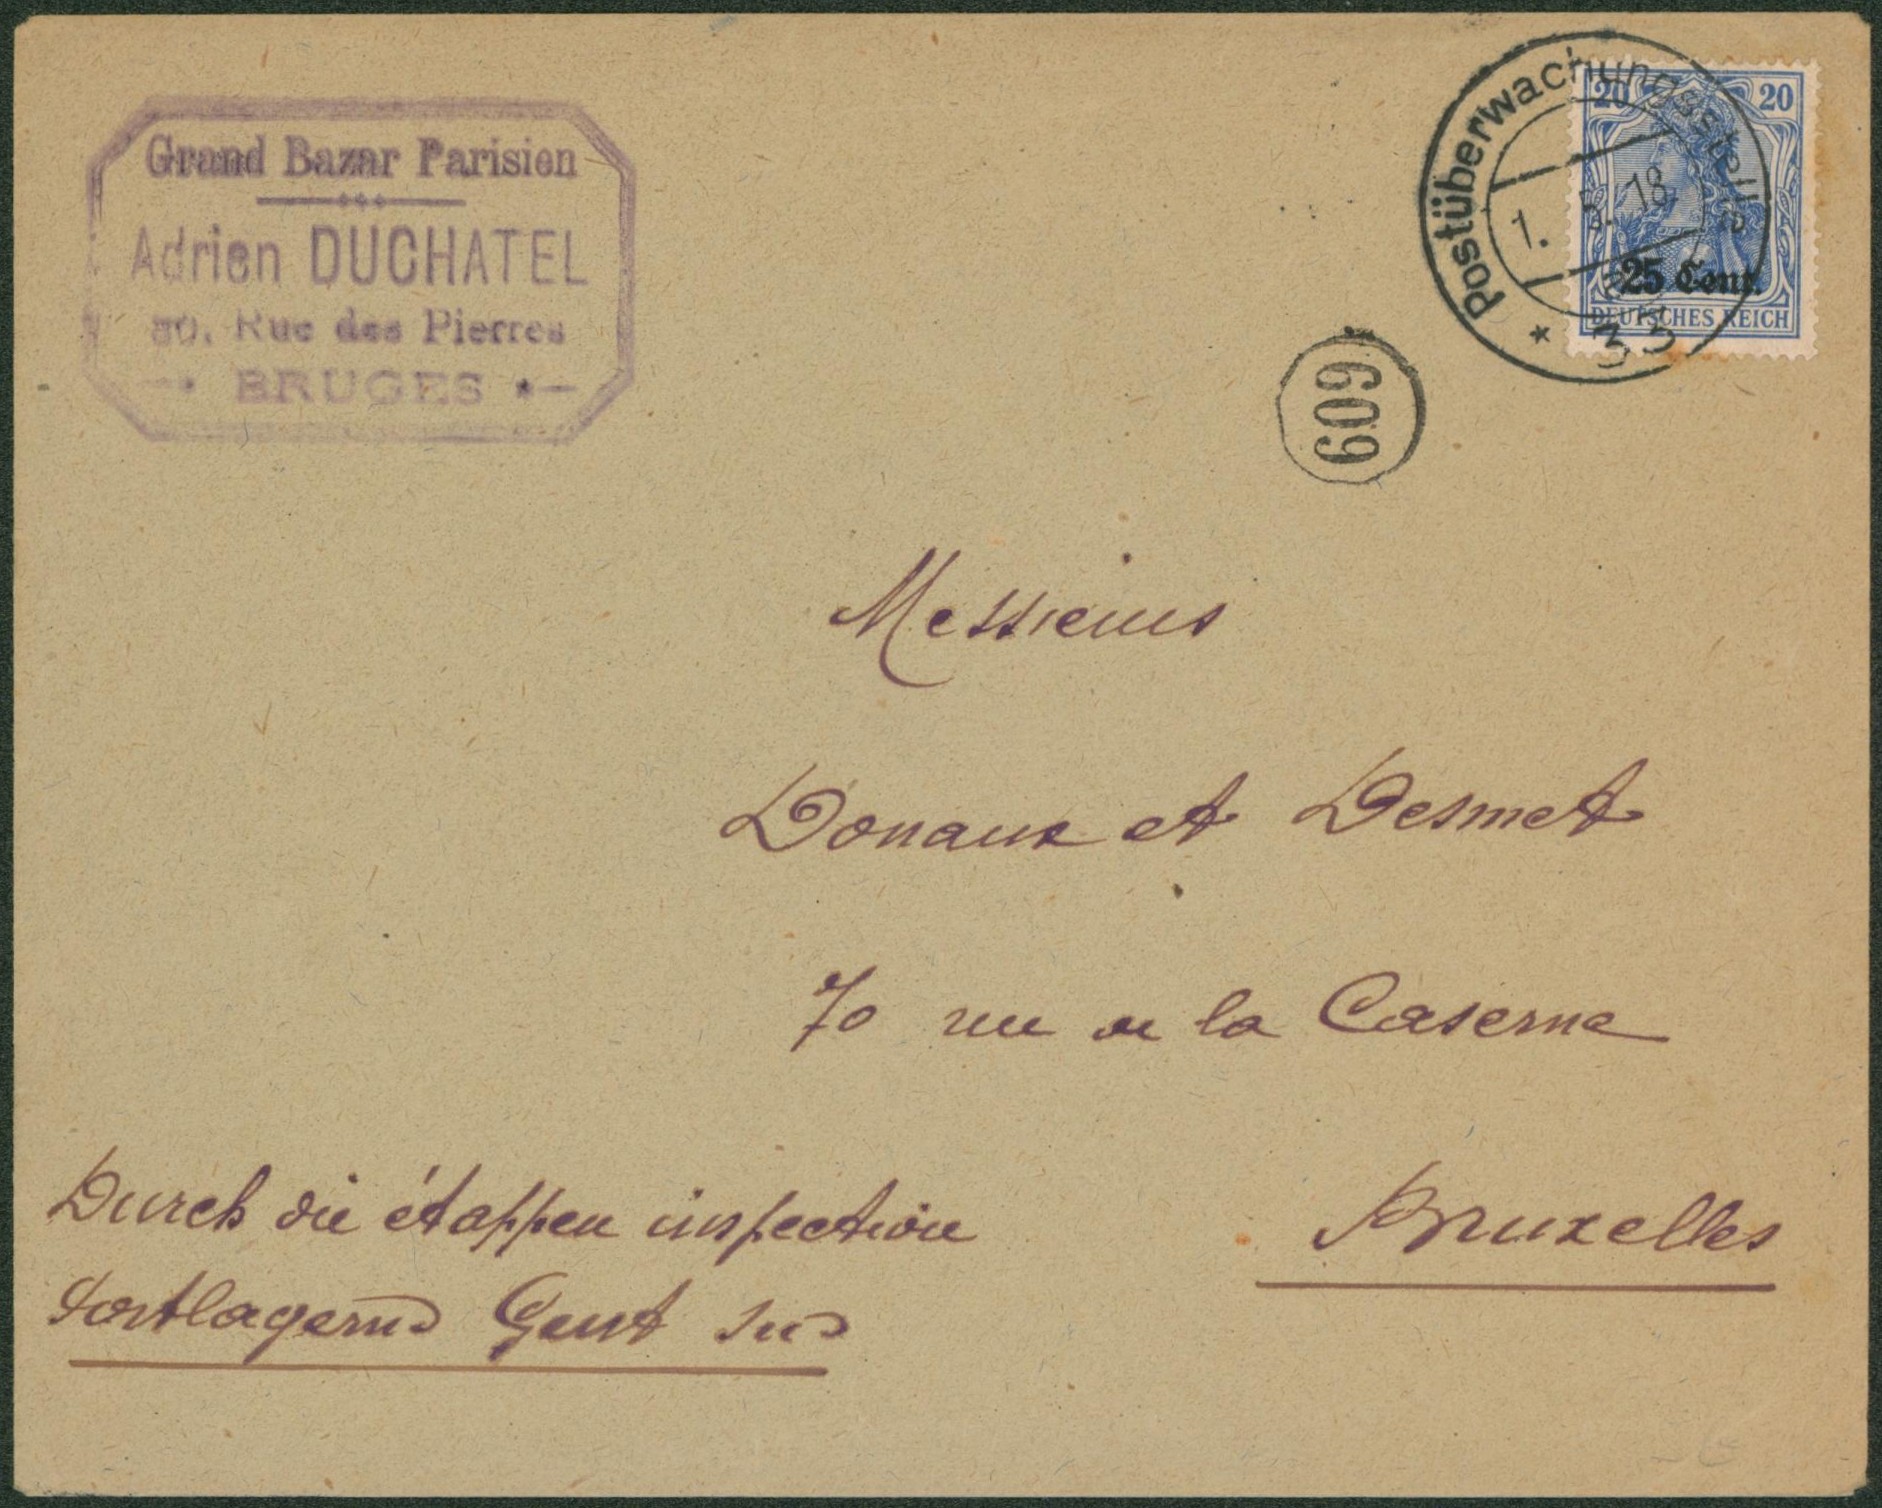 Grand Bazar Parisien
Adrien DUCHATEL
80, Rue des Pierres
BRUGES
Postüberwachungsstelle
1. 5. 18
33
20 20
25 Cent.
DEUTSCHES REICH
609
Messieurs
Donaux et Desmet
70 rue de la Caserne
Bruxelles
Durch die étappen inspection
Postlagernd Gent Sud